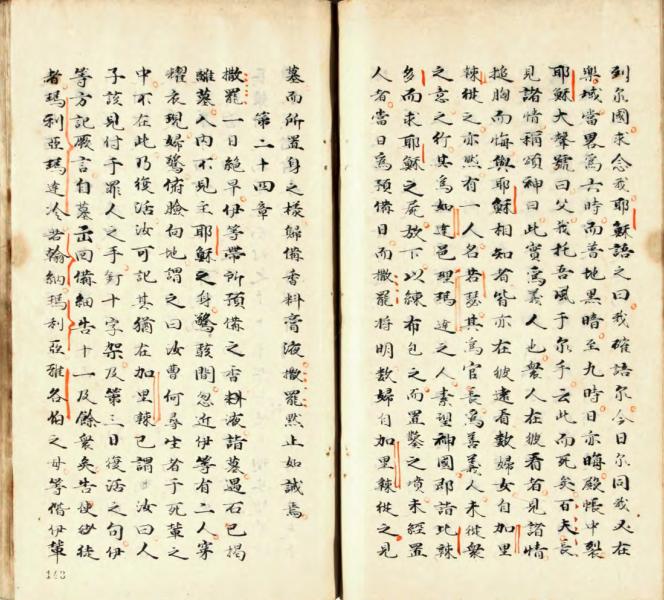 列尔國求念我耶穌語之曰我確語尔今日尔同我必在
樂域當畧為六時而普地黑暗至九時日亦晦殿帳中裂
耶穌大聲號曰父我托吾風于尔手云此而死矣百夫長
見諸情稱頌神曰此實為義人也衆人在彼看者見諸情
搥胸而悔與耶穌相知者皆亦在彼遠看數婦女自加里
辣從之亦然有一人名若瑟其為官長為善義人未從衆
之意之行其為如達邑理瑪達之人素望神國即詣比辣
多而求耶穌之屍放下以練布包之而置鑿之墳未經置
人者當日為預備日而撒罷將明數婦自加里辣從之見
墓而所置身之樣歸備香料膏液撒罷然止如誡焉
第二十四章
撒罷一日絕早伊等帶所預備之香料液詣墓遇石已揭
離墓入內不見主耶穌之身驚駭間忽近伊等有二人穿
耀衣現婦驚俯臉向地謂之曰汝曹何尋生者于死輩之
中不在此乃復活汝可記其猶在加里辣已謂汝曰人
子該見付于罪人之手釘十字架及第三日復活之句伊
等方記厥言自墓回備細告十一及餘衆矣告使徒
者瑪利亞瑪達冷若翰納瑪利亞雅各伯之母等偕伊輩
143